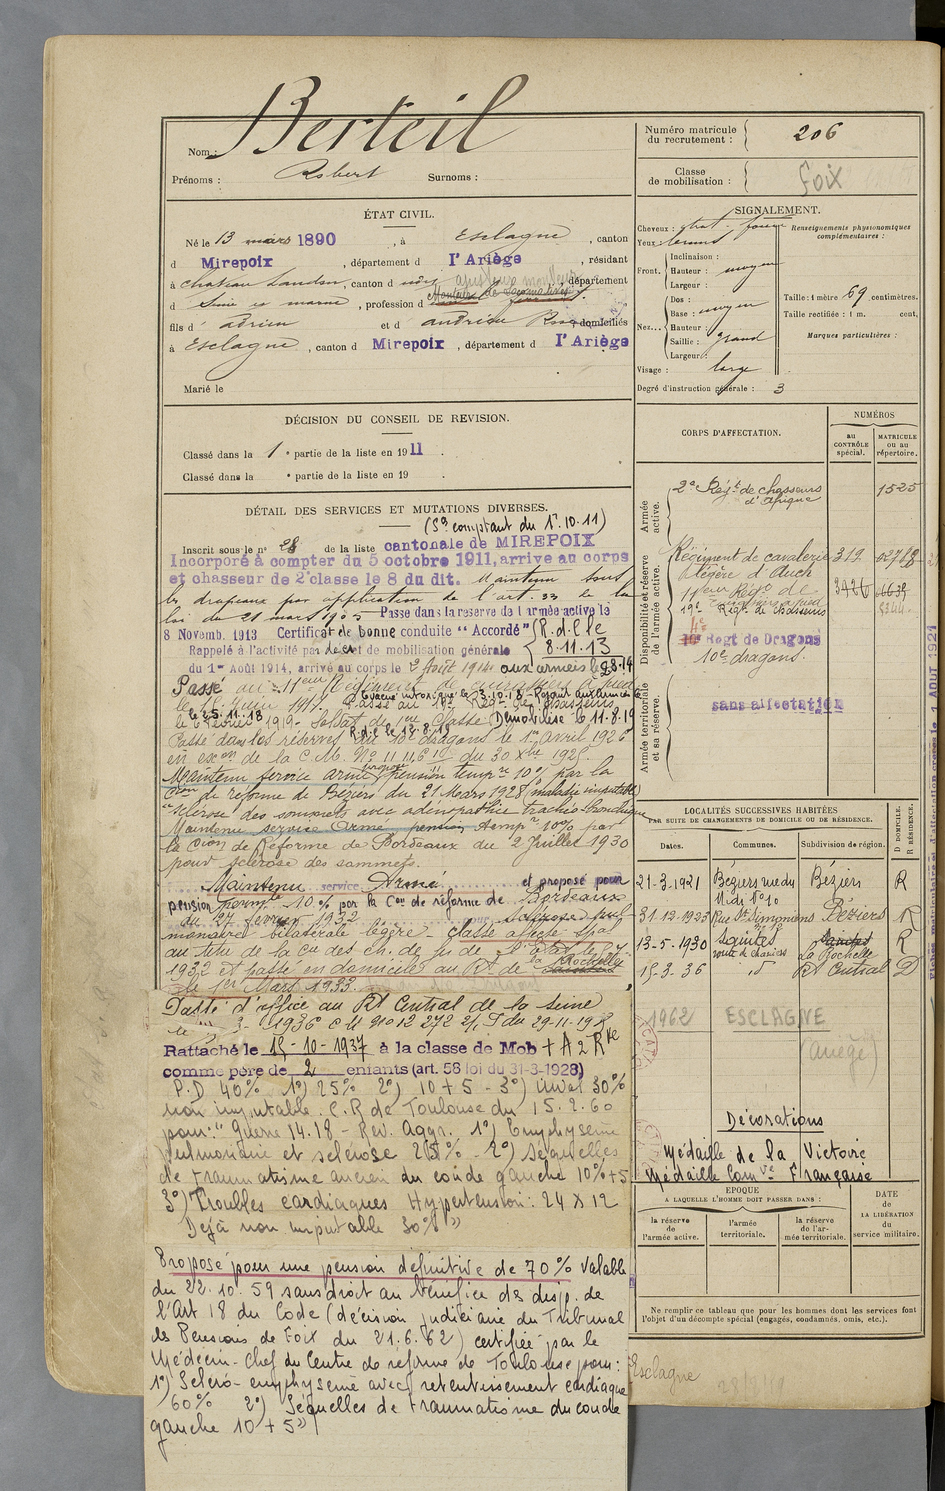 Berteil
Nom :
Prénoms : Robert Surnoms :
Numéro matricule du recrutement : 206
Classe de mobilisation : Foix
ÉTAT CIVIL.
Né le 13 mars 1890, à Esclagne, canton
d Mirepoix, département d l'Ariège, résidant
à chateau Landon, canton d département
d Seine et marne, profession d
fils d' adrien et d' andrieu domiciliés
à Esclagne, canton d Mirepoix, département d l'Ariège
Marié le
SIGNALEMENT.
Cheveux : chat. foncé
Yeux
Front. Inclinaison :
Hauteur : moyen
Largeur :
Nez... Dos :
Base : moyen
Hauteur :
Saillie : grand
Largeur :
Visage : large
Renseignements physionomiques complémentaires :
Taille : 1 mètre 69 centimètres.
Taille rectifiée : 1 m. cent.
Marques particulières :
Degré d'instruction générale : 3
DÉCISION DU CONSEIL DE REVISION.
Classé dans la 1e partie de la liste en 1911.
Classé dans la e partie de la liste en 19 .
DÉTAIL DES SERVICES ET MUTATIONS DIVERSES.
(Se comptant du 1.10.11)
Inscrit sous le n° 28 de la liste cantonale de MIREPOIX
Incorporé à compter du 5 octobre 1911, arrive au corps
et chasseur de 2e classe le 8 du dit. Maintenu sous
les drapeaux par application de l'art. 33 de la
loi du 21 mars 1905 Passé dans la réserve de l'armée active le
8 Novemb. 1913 Certificat de bonne conduite "Accordé" R.d.c le
Rappelé à l'activité par décret de mobilisation générale 8.11.13
du 1er Août 1914, arrivé au corps le 2 Août 1914 aux armées le 2.8.14
Passé au 11eme Régiment de cuirassiers à pied
le 1er Juin 1917. Evacué intoxiqué le 3.10.18 Rejoint aux armées
le 25.11.18 Passé au 19e Rég. de chasseurs
le 6 Février 1919. Soldat de 1ere Classe Démobilisé le 11.8.19
R.d.c le 12.8.19
Passé dans les réserves au 10e dragons le 1er avril 1926
en exon de la C.M. No 11.416 du 30 Xbre 1925.
Maintenu service armé proposé pension tempre 10% par la
Cion de réforme de Béziers du 21 Mars 1928 maladie imputable
"Sclérose des sommets avec adénopathie trachéo-bronchique
Maintenu service Armé pension tempre 10% par
la Cion de Réforme de Bordeaux du 2 Juillet 1930
pour sclérose des sommets.
Maintenu service Armé et proposé pour
pension permte 10% par la Con de réforme de Bordeaux
du 27 fevrier 1932
monaire bilatérale légère. Classé affecté spal
au titre de la Cie des ch. de fer de l'Etat le
1932 et passé en domicile au Rt de la Rochelle
le 1er Mars 1933.
Passé d'office au Rt Central de la Seine
le 3- 1936 C M N° 12 272 du 29-11-19
Rattaché le 15-10-1937 à la classe de Mob + A 2 Rte
comme père de 2 enfants (art. 58 loi du 31-3-1928)
P.D 40% 1°) 25% 2°) 10+5 - 3°) inval 30%
non imputable. C.R de Toulouse du 15.2.60
pour : "Guerre 14.18 - Rev. Aggr. 1°) Emphysème
pulmonaire et sclérose 25% - 2°) séquelles
de traumatisme ancien du coude gauche 10% + 5
3°) Troubles cardiaques Hypertension : 24 X 12
Déjà non imputable 30% "
Proposé pour une pension définitive de 70% Valable
du 22.10.59 sans droit au bénéfice des disp. de
l'Art 18 du Code (décision judiciaire du Tribunal
des Pensions de Foix du 21.6.62) certifiée par le
Médecin-Chef du Centre de réforme de Toulouse pour :
1°) Scléro-emphysème avec retentissement cardiaque
60% 2°) Séquelles de traumatisme du coude
gauche 10 + 5"
CORPS D'AFFECTATION.
NUMÉROS
au CONTRÔLE spécial.
MATRICULE ou au répertoire.
Armée active.
2e Régt de chasseurs d'Afrique 1525
Disponibilité et réserve de l'armée active.
Régiment de cavalerie 319
légère d'Auch
11eme Régt de
19e Régt de chasseurs
Regt de Dragons
10e dragons.
Armée territoriale et sa réserve.
sans affectation
LOCALITÉS SUCCESSIVES HABITÉES
PAR SUITE DE CHANGEMENTS DE DOMICILE OU DE RÉSIDENCE.
Dates. Communes. Subdivision de région. D DOMICILE. R RÉSIDENCE.
21-3-1921 Béziers rue du Midi N° 10 Béziers R
31-12-1923 Rue St Simoniens Béziers R
13-5-1930 Saintes La Rochelle R
15.3.36 Rt Central D
1962 ESCLAGNE
(ariège)
Décorations
Médaille de la Victoire
Médaille Comve Française
EPOQUE
A LAQUELLE L'HOMME DOIT PASSER DANS :
la réserve de l'armée active.
l'armée territoriale.
la réserve de l'armée territoriale.
DATE de LA LIBÉRATION du service militaire.
Ne remplir ce tableau que pour les hommes dont les services font
l'objet d'un décompte spécial (engagés, condamnés, omis, etc.).
Esclagne